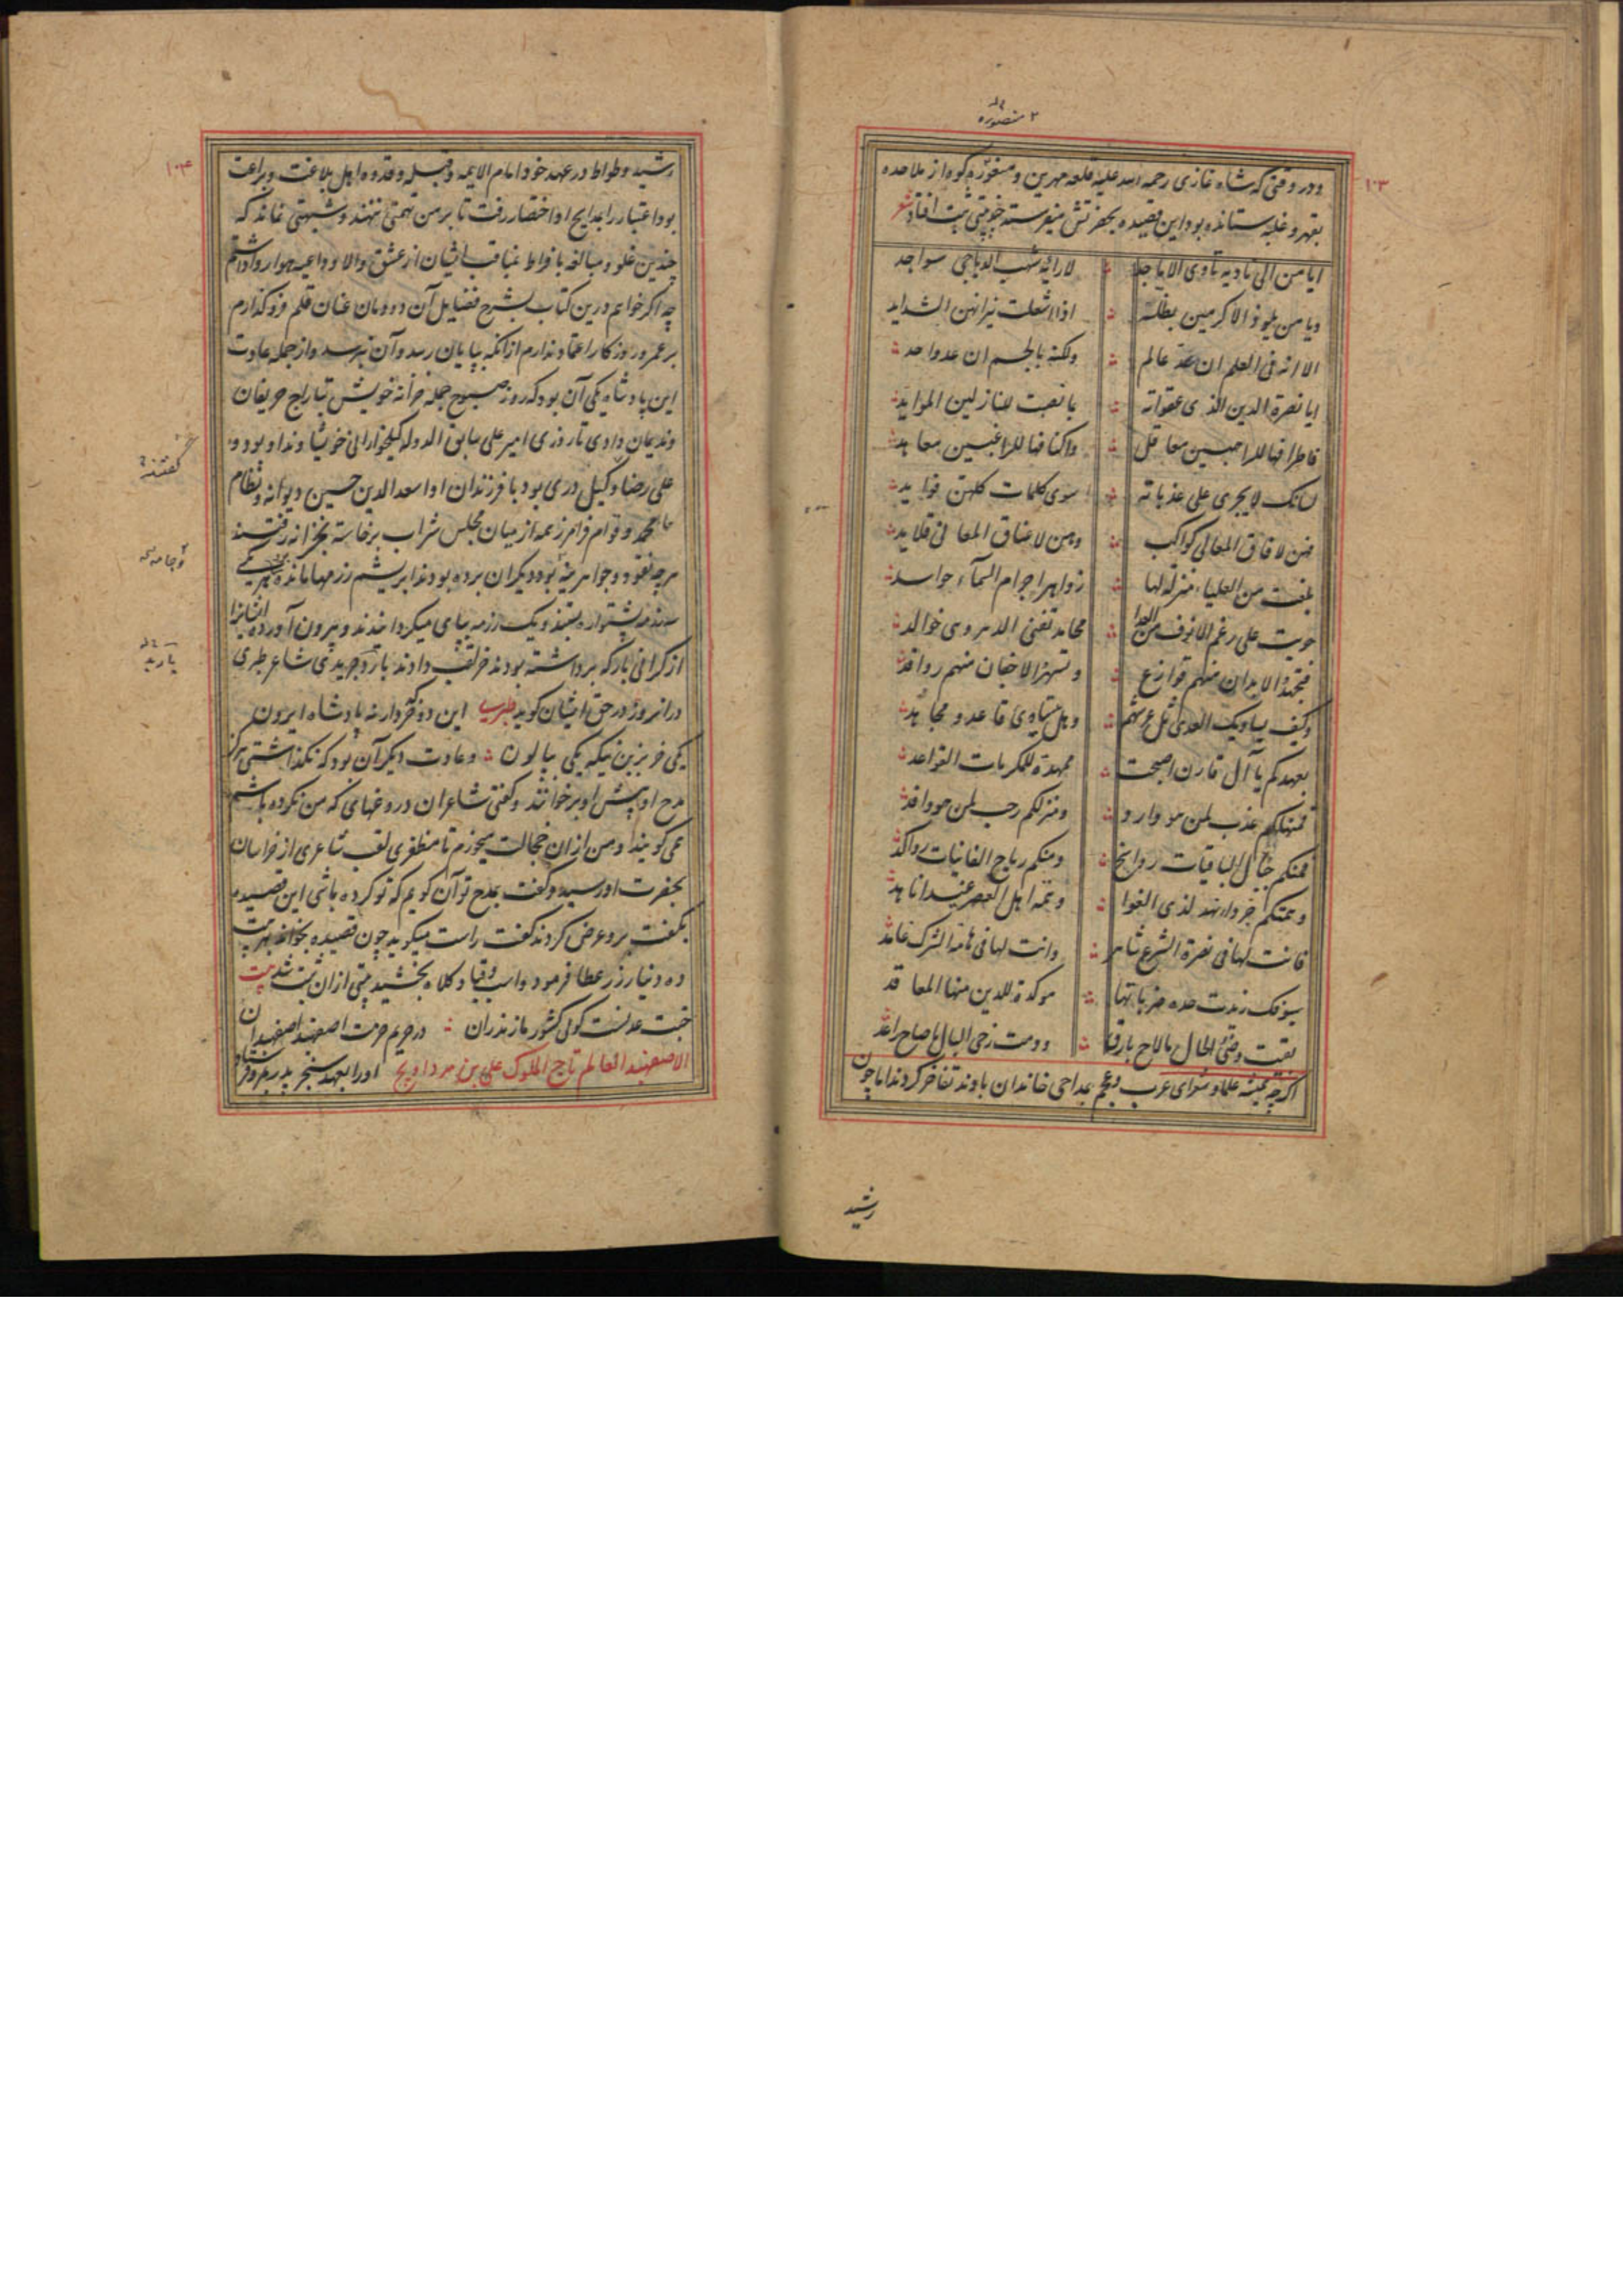 ۲ منصوره
۱۰۳
ودر وقتی که شاه غازی رحمه الله علیه قلعه مهرین و منصوره کوه از ملاحده
بقهر و غلبه ستانده بود این قصیده بحضرتش میفرستد بیتی ثبت افتاد شعر
ایا من الی نادیه تأوی الاماجد لارائه شهب الدیاجی سواجد
ویا من یلوذ الاکرمین بظله اذا اشعلت نیرانهن الشداید
الا انه فی العلم ان عد عالم ولکنه بالجسم ان عد واحد
ایا نصرة الدین الذی عقواته بانصبت للنازلین الموایذ
فاطرافها للراهبین معاقل واکنافها للراغبین معاهد
لسانک لا یجری علی عذباته سوی کلمات کلهن فواید
فهن لافاق المعالی کواکب وهن لاعناق المعالی قلاید
بلغت من العلیاء منزلة لها زواهر اجرام السماء حواسد
حویت علی رغم الانوف من العدا محامد تفنی الدهر وهی خوالد
وکیف یساویک العدی ثل عرشهم وهل یتساوی قاعد و مجاهد
بعهدکم یا آل قارن اصبحت ممهدة للمکرمات القواعد
فمنهلکم عذب لمن هو وارد ومنزلکم رحب لمن هو وافد
فمنکم جبال الباقیات رواسخ ومنکم ریاح الفانیات رواکد
فانت لها فی نصرة الشرع شاهر وانت لها فی هامة الشرک غامد
سیوفک زیدت حده ضرباتها موکدة للدین منها المعاقد
بقیت رضی الحال مالاح بارق ودمت رخی البال ما صاح راعد
اگرچه همیشه علما و شعرای عرب و عجم بمداحی خاندان باوند تفاخر کردند اما چون
رشید
۱۰۴
رشید وطواط در عهد خود امام الایمه و قبله و قدوه اهل بلاغت و براعت
بود اعتبار را بمدایح او اختصار رفت تا بر من تهمتی ننهند و شبهتی نماند که
چندین غلو و مبالغه با فراط مناقب ایشان از عشق والا و داعیه هوا روا داشتم
چه اگر خواهم درین کتاب بشرح فضایل آن دودمان عنان قلم فرو گذارم
بر عمر و روزکار اعتماد ندارم از آنکه بپایان رسد و آن نرسد و از جمله عادت
این پادشاه یکی آن بود که روز صبوح جمله خزانه خویش بتاراج حریفان
وندیمان دادی تا روزی امیر علی سابق الدوله گیلخواران خویشاوند او بود و
گفتند
علی رضا وکیل دری بود با فرزندان او اسعد الدین حسین دیوانه و نظام
محمد و قوام فرامرز عمه از میان مجلس شراب برخاسته بخزانه رفتند
و جامه
هرچه نقود و جواهرینه بود دیگران برده بودند ابریشم رزمها مانده بود هر یکی
سه رزمه پشتواره بستند و یک رزمه بپای میگردانیدند و بیرون آورده ایشانرا
باربد
از گرانی بار که برداشته بودند خر لقب دادند باربد جریدی شاعر طبری
در آنروز در حق ایشان گوید طبریه این دو کردار نه پادشاه ایرون
یکی خر بزین نیکه یکی پالون وعادت دیگر آن بود که نگذاشتی هرگز
مدح او پیش او برخوانند و گفتی شاعران دروغهایی که من نکرده باشم
می گویند و من از آن خجالت میخورم تا مظفری لقب شاعری از خراسان
بحضرت او رسید و گفت بمدح تو آن گویم که تو کرده باشی این قصیده
بگفت برو عرض کردند گفت راست میگوید چون قصیده بخواند بهر بیت
ده دینار زر عطا فرمود و اسب و قبا و کلاه بخشید بیتی از آن ثبت شد بیت
جنت عدنست گوئی کشور مازندران در حریم حرمت اصفهبد اصفهبدان
الاصفهبد العالم تاج الملوک علی بن مرداویج او را بعهد سنجر پدر بمرو فرستاد